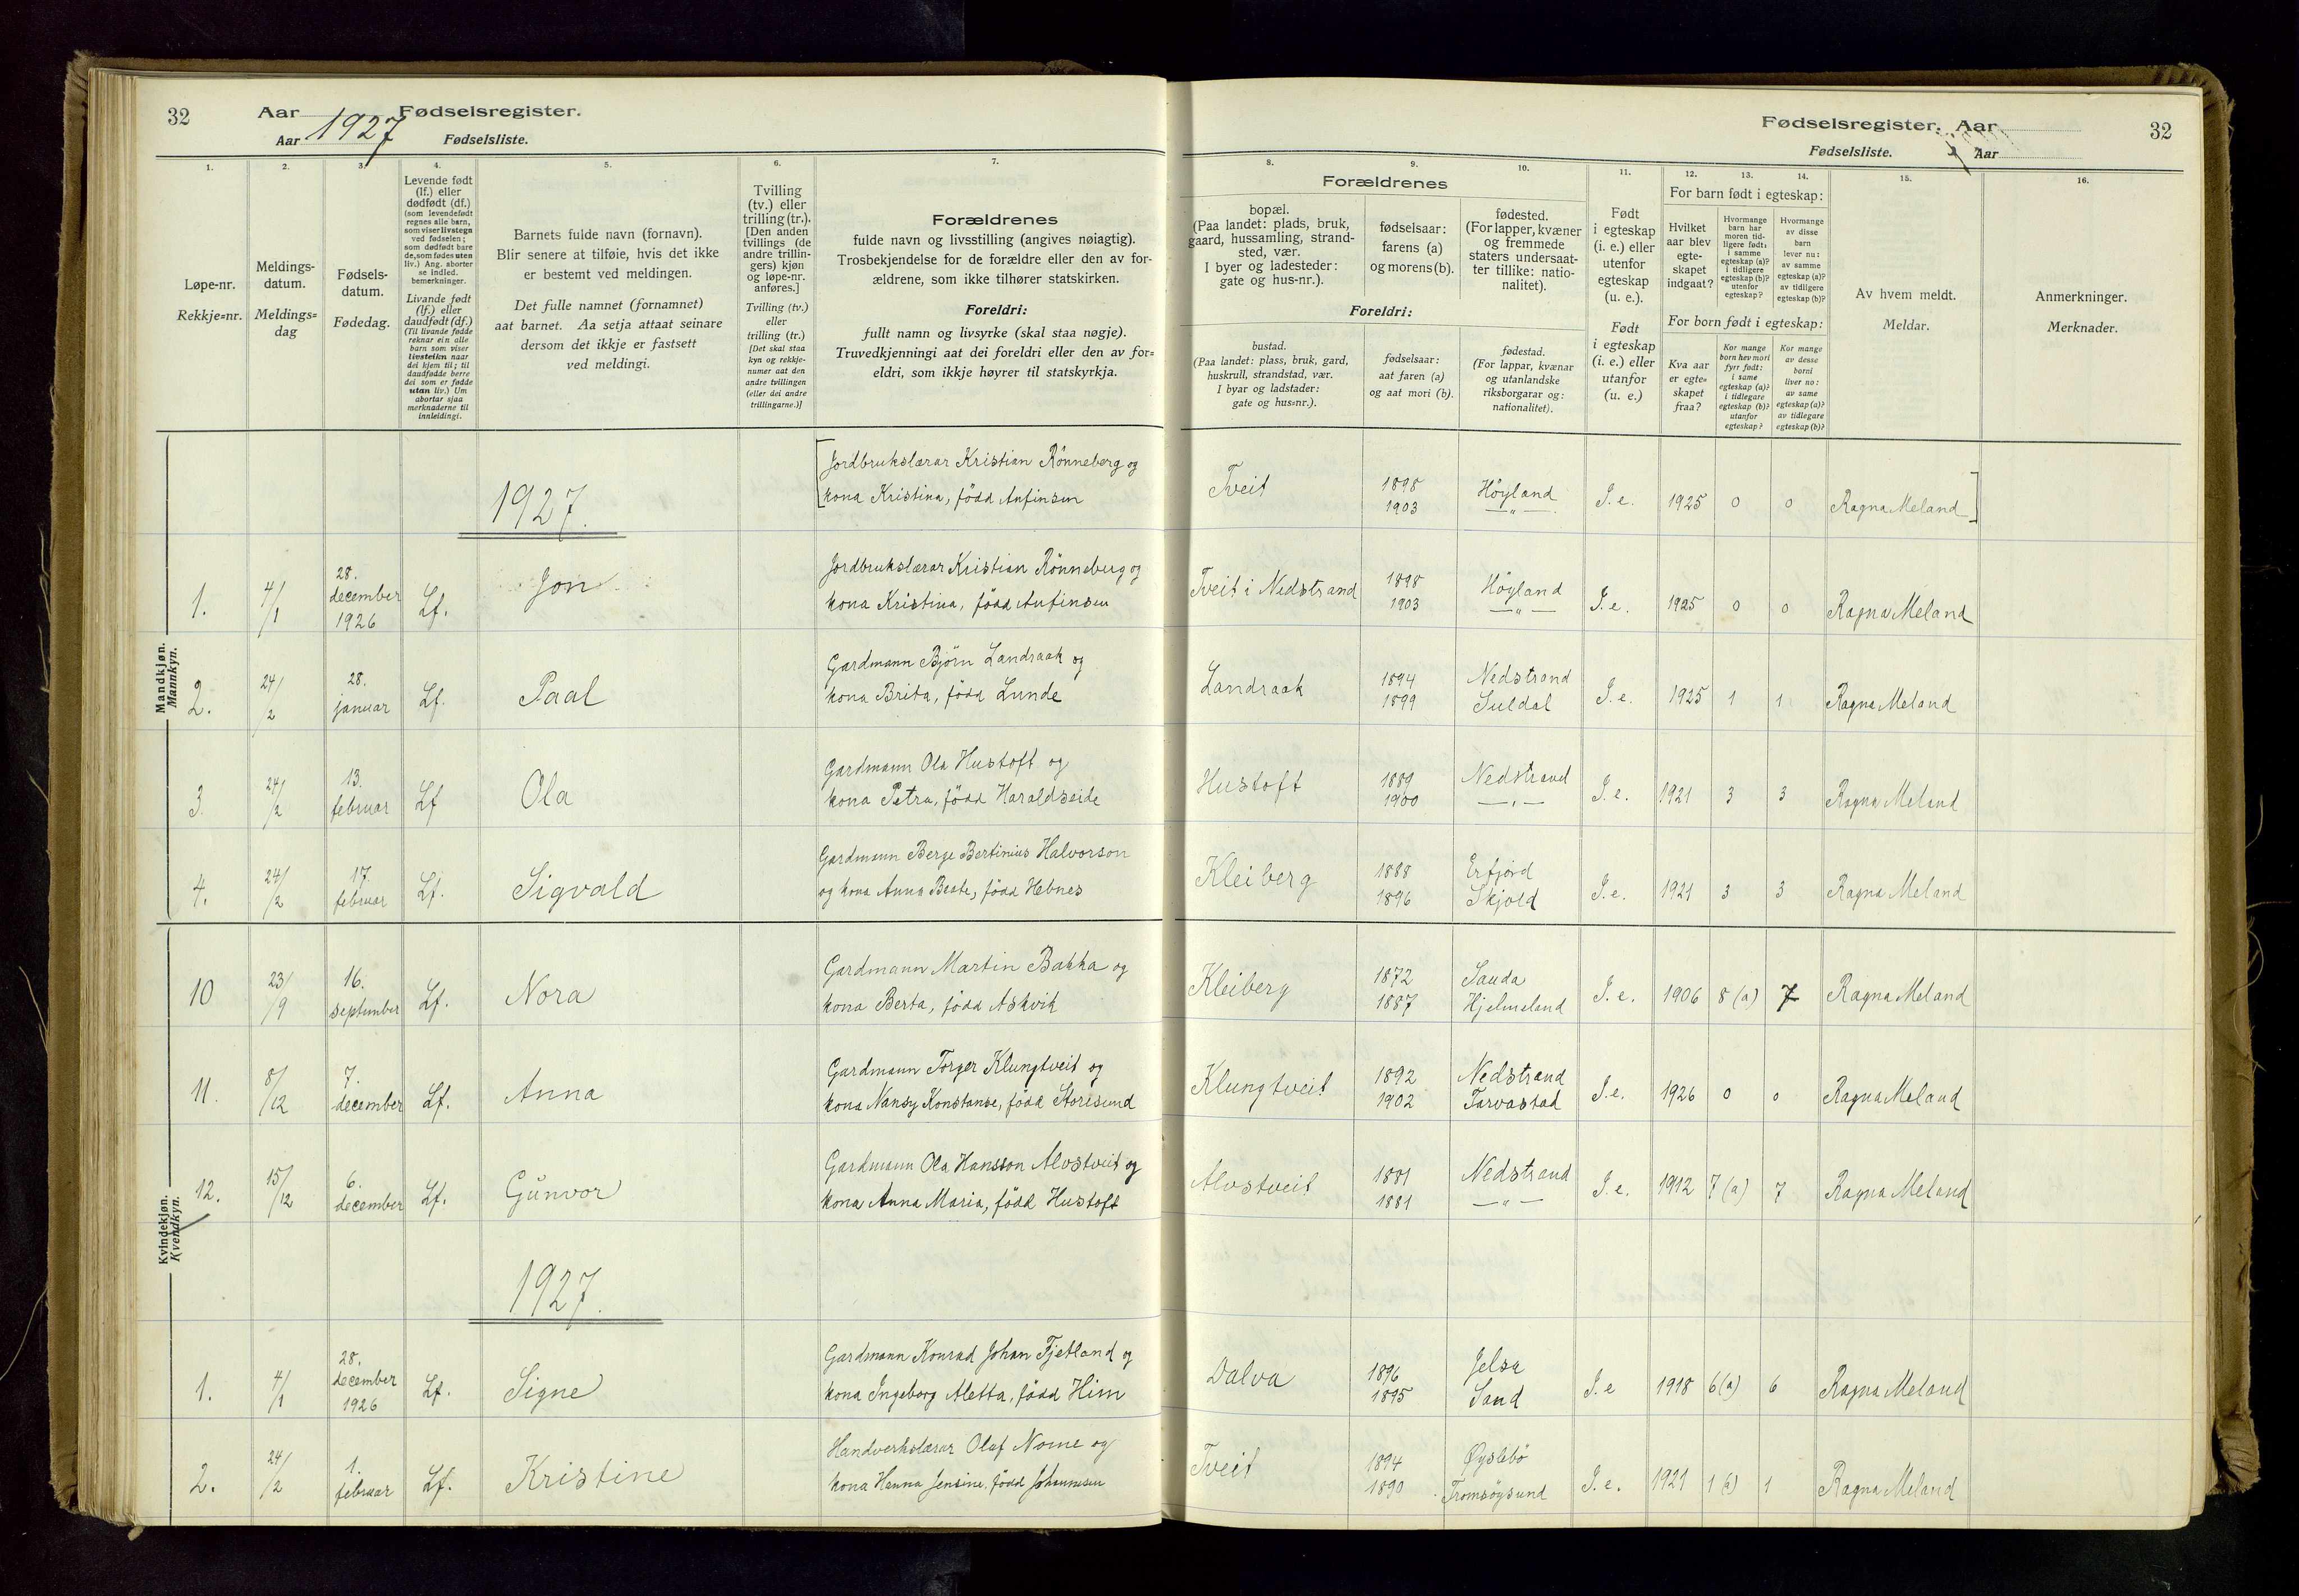 32
Aar 1927 Fødselsregister.
Aar Fødselsliste.
1.
2.
3.
4.
5.
6.
7.
Løpe-nr.
Rekkje=nr.
Meldings-
datum.
Meldings=
dag
Fødsels-
datum.
Fødedag.
Levende født
(lf.) eller
dødfødt (df.)
(som levendefødt
regnes alle barn,
som viser livstegn
ved fødselen;
som dødfødt bare
de, som fødes uten
liv.) Ang. aborter
se indled.
bemerkninger.
Livande født
(lf.) eller
daudfødt (df.)
(Til livande fødde
reknar ein alle
barn som viser
livsteikn naar
dei kjem til; til
daudfødde berre
dei som er fødde
utan liv.) Um
abortar sjaa
merknaderne til
innleidingi.
Barnets fulde navn (fornavn).
Blir senere at tilføie, hvis det ikke
er bestemt ved meldingen.
Det fulle namnet (fornamnet)
aat barnet. Aa setja attaat seinare
dersom det ikkje er fastsett
ved meldingi.
Tvilling
(tv.) eller
trilling (tr.).
[Den anden
tvillings (de
andre trillin-
gers) kjøn
og løpe-nr.
anføres.]
Tvilling (tv.)
eller
trilling (tr.)
[Det skal staa
kyn og rekkje-
numer aat den
andre tvillingen
(eller dei andre
trillingarne.)]
Forældrenes
fulde navn og livsstilling (angives nøiagtig).
Trosbekjendelse for de forældre eller den av for-
ældrene, som ikke tilhører statskirken.
Foreldri:
fullt namn og livsyrke (skal staa nøgje).
Truvedkjenningi aat dei foreldri eller den av for=
eldri, som ikkje høyrer til statskyrkja.
Fødselsregister. Aar
32
Fødselsliste. Aar
8.
9.
10.
11.
12.
13.
14.
15.
16.
Forældrenes
bopæl.
(Paa landet: plads, bruk,
gaard, hussamling, strand-
sted, vær.
I byer og ladesteder:
gate og hus-nr.).
fødselsaar:
farens (a)
og morens (b).
fødested.
(For lapper, kvæner
og fremmede
staters undersaat-
ter tillike: natio-
nalitet).
Foreldri:
bustad.
(Paa landet: plass, bruk, gard,
huskrull, strandstad, vær.
I byar og ladstader:
gate og hus=nr.).
fødselsaar:
aat faren (a)
og aat mori (b).
fødestad.
(For lappar, kvænar
og utanlandske
riksborgarar og:
nationalitet).
Født
i egteskap
(i. e.) eller
utenfor
egteskap
(u. e.).
Født
i egteskap
(i. e.) eller
utanfor
(u. e.)
For barn født i egteskap:
Hvilket
aar blev
egte-
skapet
indgaat?
Hvormange
barn har
moren tid-
ligere født:
i samme
egteskap (a)?
i tidligere
egteskap (b)?
utenfor
egteskap?
Hvormange
av disse
barn
lever nu:
av samme
egteskap (a)?
av tidligere
egteskap (b)?
For born født i egteskap:
Kva aar
er egte=
skapet
fraa?
Kor mange
born hev mori
fyrr født:
i same
egteskap (a)?
i tidlegare
egteskap (b)?
utanfor
egteskap?
Kor mange
av desse
borni
liver no:
av same
egteskap (a)?
av tidlegare
egteskap (b)?
Av hvem meldt.
Meldar.
Anmerkninger.
Merknader.
Mandkjøn.
Mannkyn.
1927.
[Jordbrukslærar Kristian Rönneberg og
kona Kristina, född Anfinsen
Tveit 1898 1903 Höyland —"— I. e. 1925 0 0 Ragna Meland]
1. 4/1 28. december 1926 Lf. Jon
Jordbrukslærar Kristian Rönneberg og
kona Kristina, född Anfinsen
Tveit i Nedstrand 1898 1903 Höyland —"— I. e. 1925 0 0 Ragna Meland
2. 24/2 28. januar Lf. Paal
Gardmann Björn Landraak og
kona Brita, född Lunde
Landraak 1894 1899 Nedstrand Suldal I. e. 1925 1 1 Ragna Meland
3. 24/2 13. februar Lf Ola
Gardmann Ola Hustoft og
kona Petra, född Haraldseide
Hustoft 1889 1900 Nedstrand —"— I. e. 1921 3 3 Ragna Meland
4. 24/2 17. februar Lf. Sigvald
Gardmann Berge Bertinius Halvorson
og kona Anna Beate, född Hebnes
Kleiberg 1888 1896 Erfjord Skjold I. e. 1921 3 3 Ragna Meland
Kvindekjøn.
Kvendkyn.
10 23/9 16. september Lf. Nora
Gardmann Martin Bakka og
kona Berta, född Askvik
Kleiberg 1872 1887 Sauda Hjelmeland I. e. 1906 8 (a) 7 Ragna Meland
11. 8/12 7. december Lf. Anna
Gardmann Torger Klungtveit og
kona Nansy Konstanse, född Storesund
Klungtveit 1892 1902 Nedstrand Torvastad I. e. 1926 0 0 Ragna Meland
12. 15/12 6. december Lf. Gunvor
Gardmann Ola Hansson Alvstveit og
kona Anna Maria, född Hustoft
Alvstveit 1881 1881 Nedstrand —"— I. e. 1912 7 (a) 7 Ragna Meland
1927.
1. 4/1 28. december 1926 Lf. Signe
Gardmann Konrad Johan Tjetland og
kona Ingeborg Aletta, född Him
Dalva 1896 1895 Jelsa Sand I. e 1918 6 (a) 6 Ragna Meland
2. 24/2 1. februar Lf. Kristine
Handverkslærar Olaf Nome og
kona Hanna Jensine, född Johannesen
Tveit 1894 1890 Øyslebö Tromsöysund I. e. 1921 1 (a) 1 Ragna Meland